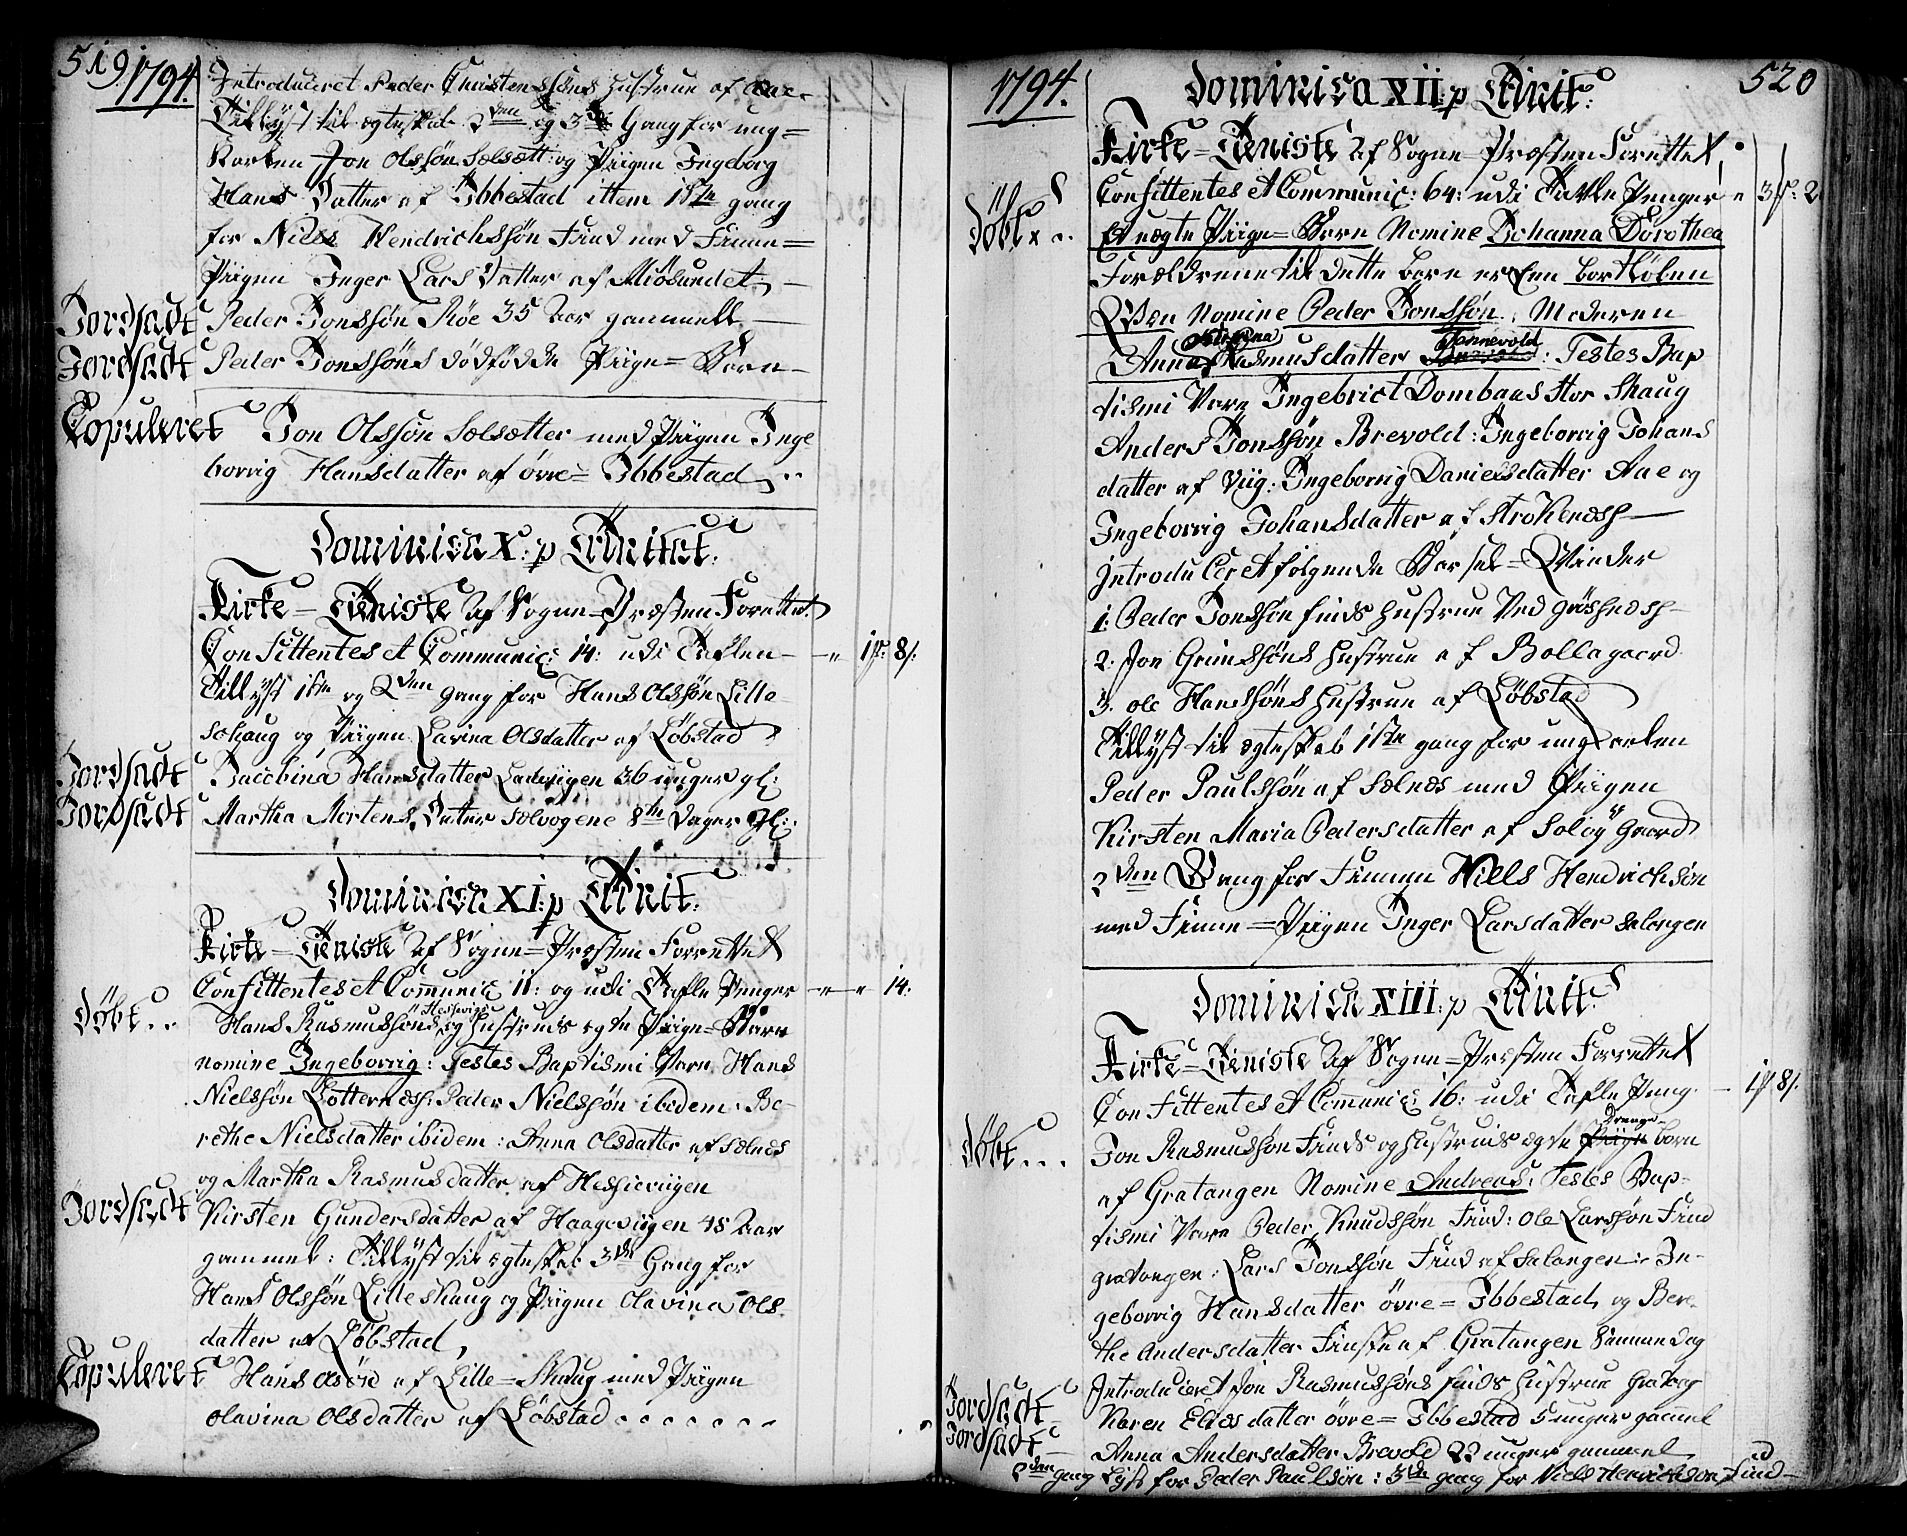 519
1794.
Introduceret Peder Christenssöns Hustrue af Aae.
Tillyst til ægteskab 2den og 3die Gang for ung=
Karlen Jon Olssön Sælsætt: og Piigen Ingeborg
Hans Datter af Ibbestad ittem 1ste gang
for Niels Hendrichssön Find med Finne=
Piigen Inger Lars Datter af Miösundet
Jordsadt Peder Jonssön Röe 35 Aar gammell
Jordsadt Peder Jonssöns dödfödde Piige=Barn
Copuleret Jon Olssön Sælsætter med Piigen Inge
borrig Hansdatter af övre= Ibbestad
Dominica X: p Trinitat:
Kirke=Tieniste Af Sogne=Præsten Forrettet
Confittentes et Communic: 14: udi Taflen - 1 8
Tillyst 1ste og 2den gang for Hans Olssön Lille
schaug og Piigen Lavina Olsdatter af Löbstad
Jordsadt Jacobina Hansdatter Ladviigen 36 uuger gl:
Jordsadt Martha Mortens Datter Sælvogene 8te Dager Gl:
Dominica XI: p Trinit:
Kirke=Tieniste af Sogne=Præsten Forrettet
Confittentes et Communic 11: og udi Tafle Penger - 14:
Döbt.. Hans Rasmussöns og Hustrues ægte Piige=Barn
nomine Ingeborrig: Testes Baptismi Vare Hans
Nielssön Lotternæs: Peder Nielssön ibidem: Be-
rethe Nielsdatter ibidem: Anna Olsdatter af Sælnes
og Martha Rasmusdatter af Hessieviigen
Jordsadt Kirsten Gundersdatter af Haageviigen 48 Aar
gammel: Tillyst til ægteskab 3die Gang for
Hans Olssön Lilleskaug og Piigen Olavina Ols-
datter af Löbstad,
Copuleret Hans Olsön af Lille=Skaug med Piigen
Olavina Olsdatter af Löbstad . . . . . . .
1794.
520
Dominica XII: p Trinit:
Kirke=Tieniste Af Sogne=Præsten Forrettet
Confittentes et Communic: 64: udi Tavle Penger 3 2
Döbt .. Et uægte Piige=Barn Nomine Johanna Dorothea
Forældrene til dette barn er Een bortlöben
Qvæn Nomine Peder Jonssön. Moderen
Anna Rasmusdatter Tannevold: Testes Bap
tismi Vare Ingebrict Dombaas Stor Skaug
Anders Jonssön Brevold: Ingeborrig Johans
datter af Viig: Ingeborrig Danielsdatter Aae og
Ingeborrig Johansdatter af Strokenæs
Introduceret fölgende Barsel=Qvinder
1: Peder Jonssön finds Hustrue Ved Gröshnæs
2. Jon Grimssöns Hustrue af Bollagaard
3. Ole Hanssöns Hustrue af Löbstad
Tillyst til ægteskab 1ste gang for ungkarlen
Peder Paulssön af Sælnæs med Piigen
Kirsten Maria Pedersdatter af Solöy Gaard
2den Gang for Finnen Nills Hendrichsön
med Finne=Piigen Inger Larsdatter Salangen
Dominica XIII: p Trinit
Kirke=Tieniste Af Sogne=Præsten Forrettet
Confittentes et Communic: 16: udi Tafle Peng. - 1 8
Döbt... Jon Rasmussön Finds og Hustrues ægte Drenge barn
af Gratangen Nomine Andreas: Testes Bap-
tismi Vare Peder Knudssön Find: Ole Larssön Find
gratangen: Lars Jonssön Find af Salangen: In-
geborrig Hansdatter övre= Ibbestad og Bere-
the Andersdatter Finske af Gratangen Samme dag
Introduceret Jon Rasmussöns finds Hustrue Gratang
Jordsadt Karen Eliesdatter övre= Ibbestad 5 uuger gammel
Jordsadt Anna Andersdatter Brevold 23 uuger gammel
2den gang Lyst for Peder Paulsön: 3die gang for Niels Henrichson Find